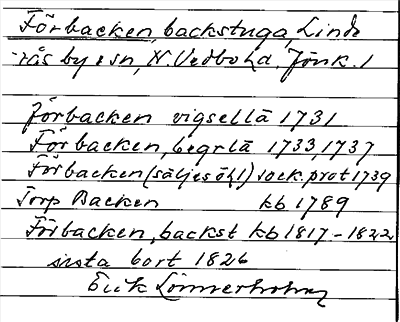 Förbacken, backstuga, Linde-
rås by o sn, N. Vedbo hd, Jönk. l
Förbacken vigsellä 1731
Förbacken, begrlä 1733, 1737
Förbacken (säljes öhl) sock.prot 1739
Torp Backen kb 1789
Förbacken, backst kb 1817-1822
sista bort 1826
Erik Lönnerholm